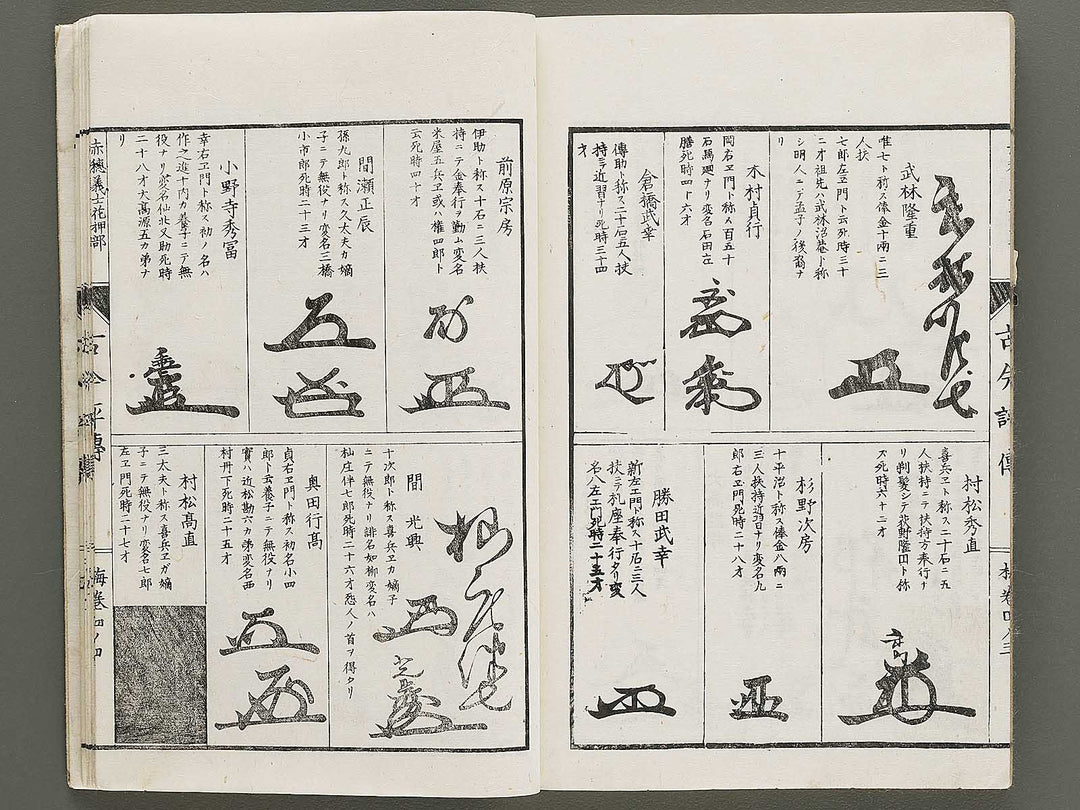 武林隆重
唯七ト称ス俵金十両ニ三
人扶
七郎左ヱ門ト云死時三十
二才祖先ハ武林沼菴ト称
シ明人ニテ孟子ノ後裔ナ
リ
木村貞行
岡右ヱ門ト称ス百五十
石馬廻ナリ変名石田左
膳死時四十六才
倉橋武幸
傳助ト称ス二十石五人扶
持ニテ近習ナリ死時三十四
才
村松秀直
喜兵ヱト称ス二十石ニ五
人扶持ニテ扶持方奉行ナ
リ剃髪シテ荻野隆円ト称
ス死時六十二才
杉野次房
十平治ト称ス俵金八両ニ
三人扶持近習ナリ変名九
郎右ヱ門死時二十八才
勝田武幸
新左ヱ門称ス十石ニ三人
扶ニテ札座奉行タリ変
名八左ヱ門死時二十五才
前原宗房
伊助ト称ス十石ニ三人扶
持ニテ金奉行ヲ勤ム変名
米屋五兵ヱ或ハ権四郎ト
云死時四十才
間瀬正辰
孫九郎ト称ス久太夫カ嫡
子ニテ無役ナリ変名三橋
小市郎死時二十三才
小野寺秀冨
幸右ヱ門ト称ス初ノ名ハ
作之進十内カ養子ニテ無
役ナリ変名仙北又助死時
二十八才大高源五カ弟ナ
リ
間 光興
十次郎ト称ス喜兵ヱカ嫡子
ニテ無役ナリ誹名如柳変名ハ
杣庄伴七郎死時二十六才怨人ノ首ヲ得タリ
奥田行高
貞右ヱ門ト称ス初名小四
郎ト云養子ニテ無役ナリ
實ハ近松勘六カ弟変名西
村丹下死時二十五才
村松高直
三太夫ト称ス喜兵ヱガ嫡
子ニテ無役ナリ変名七郎
左ヱ門死時二十七才
赤穂義士花押部
梅巻四ノ四